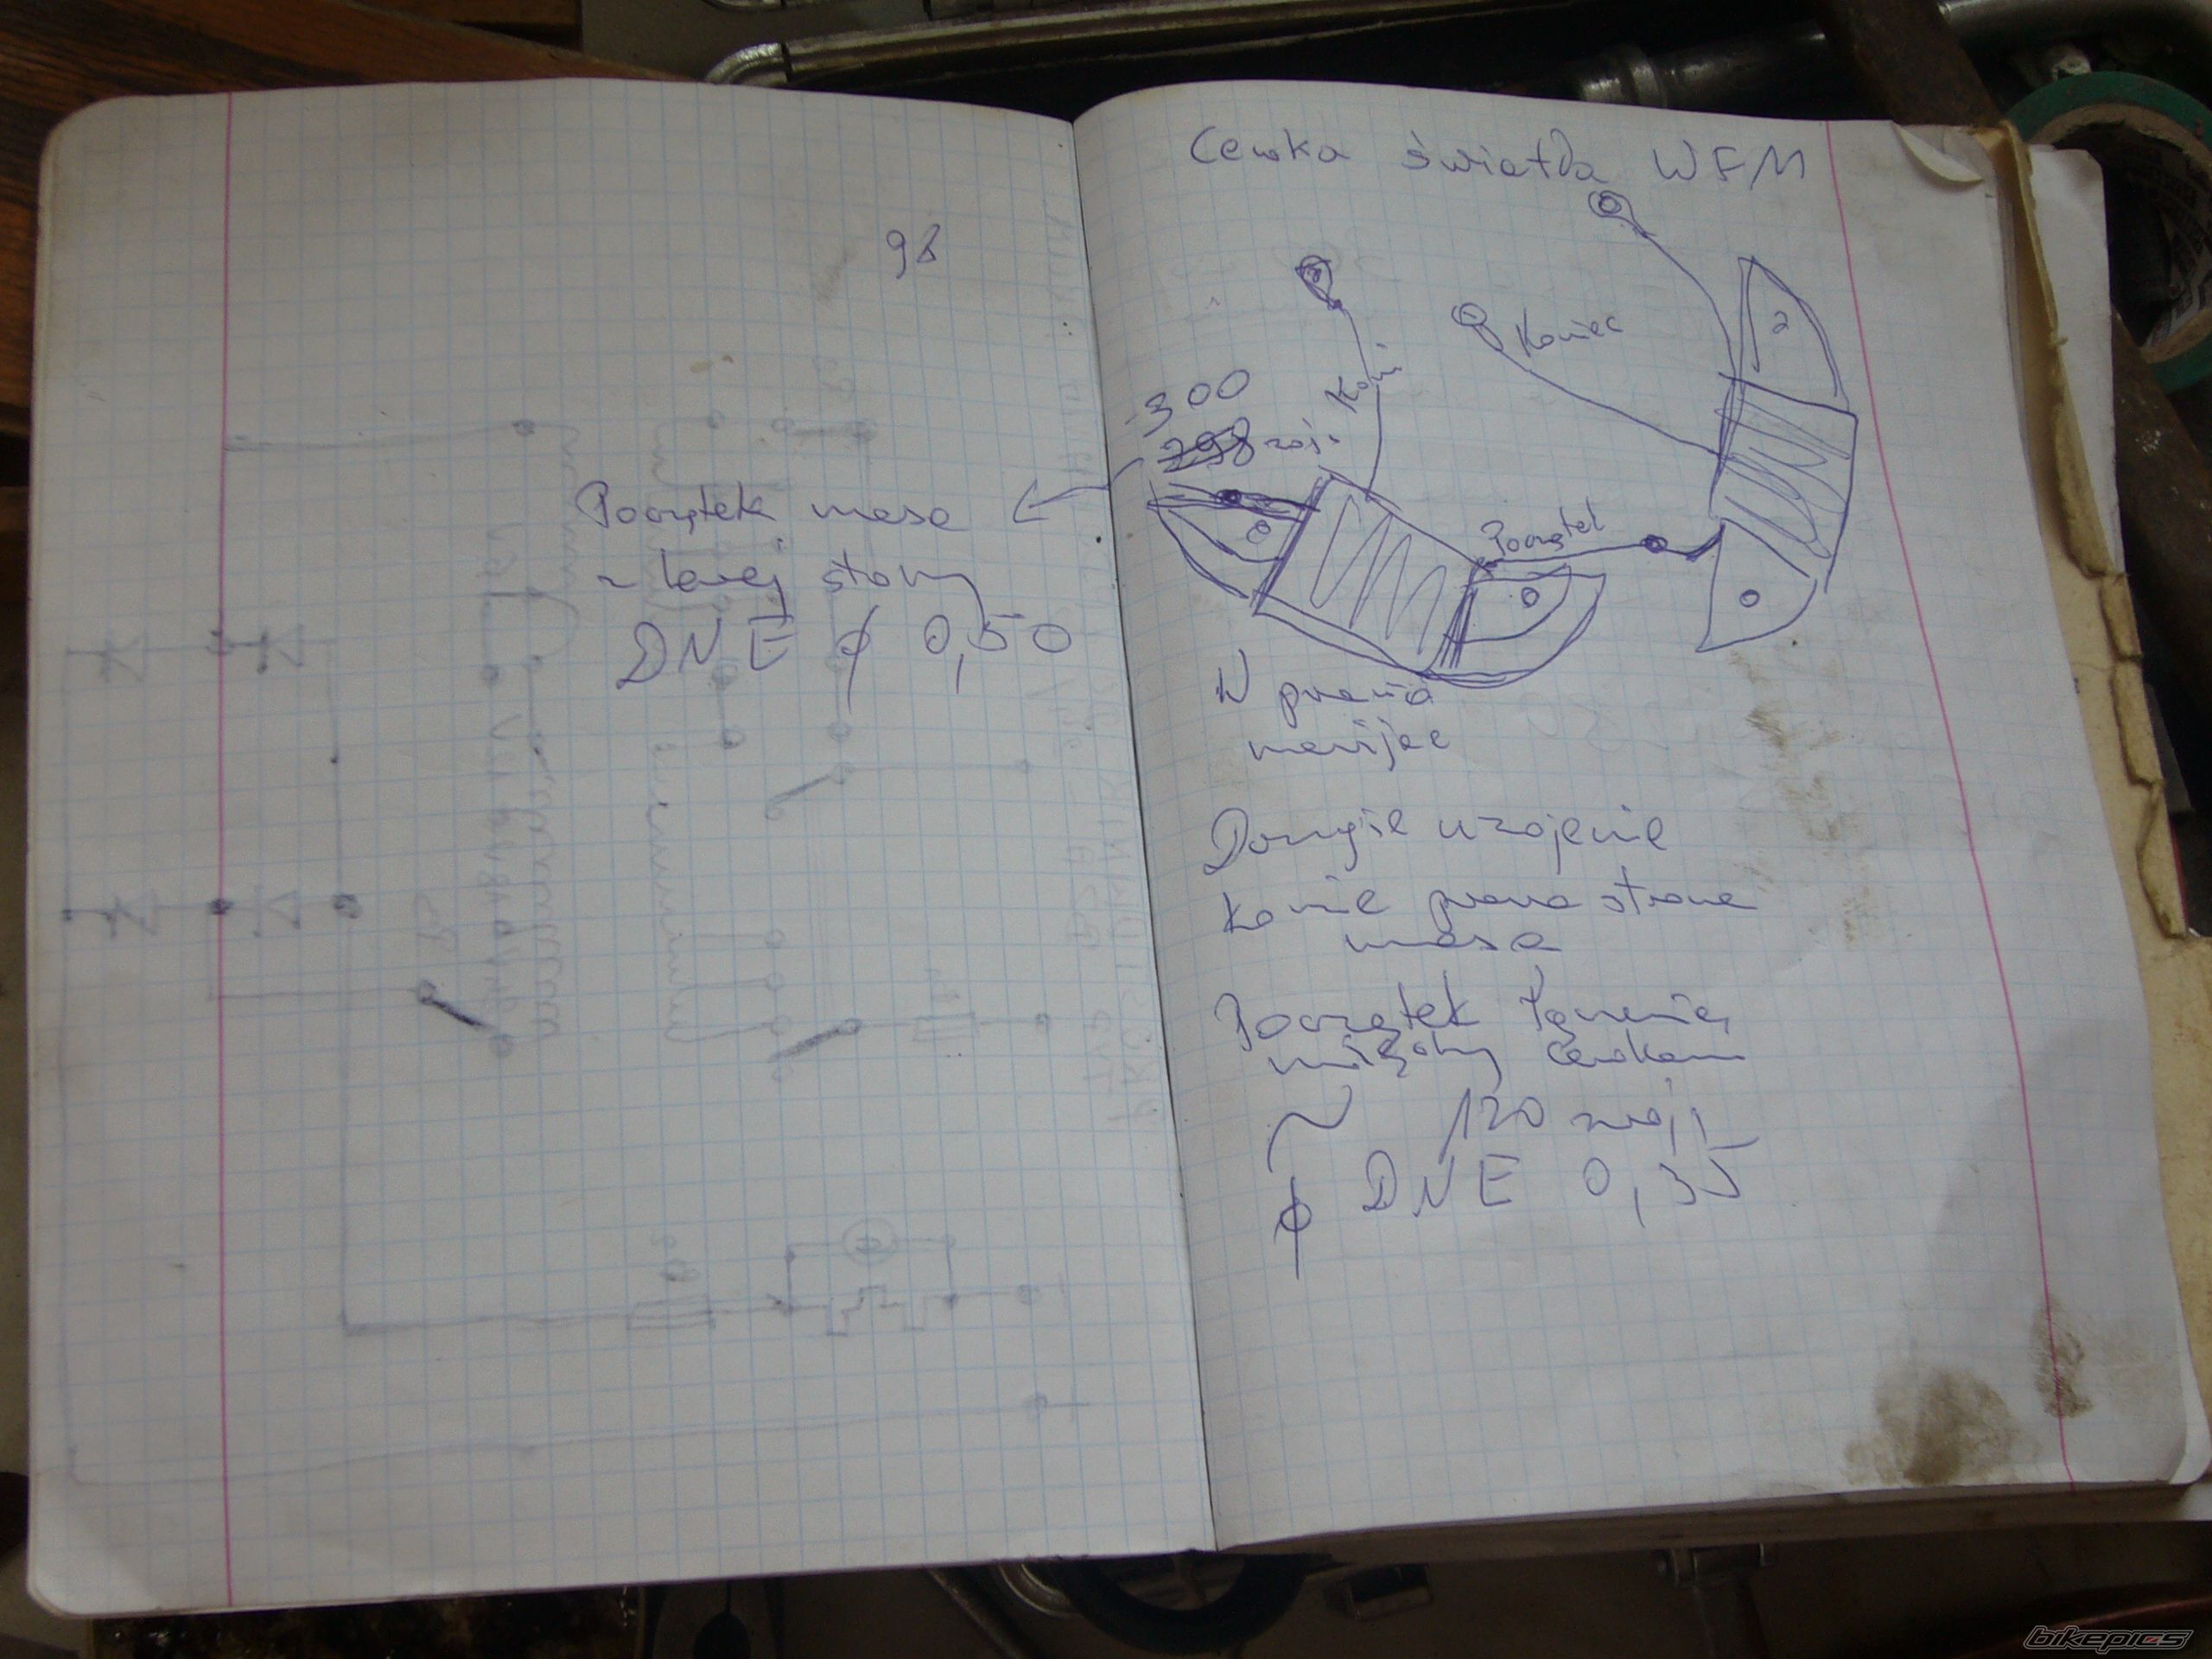 98
Początek masa
z lewej strony
DNE ϕ 0,50
Cewka światła WFM
Koniec
300
298 zwoji
Początek
W prawo
nawijać
Drugie uzwojenie
Koniec prawa strona
masa
Początek łączenie
między cewkami
~ 120 zwoji
ϕ DNE 0,35
bikepics